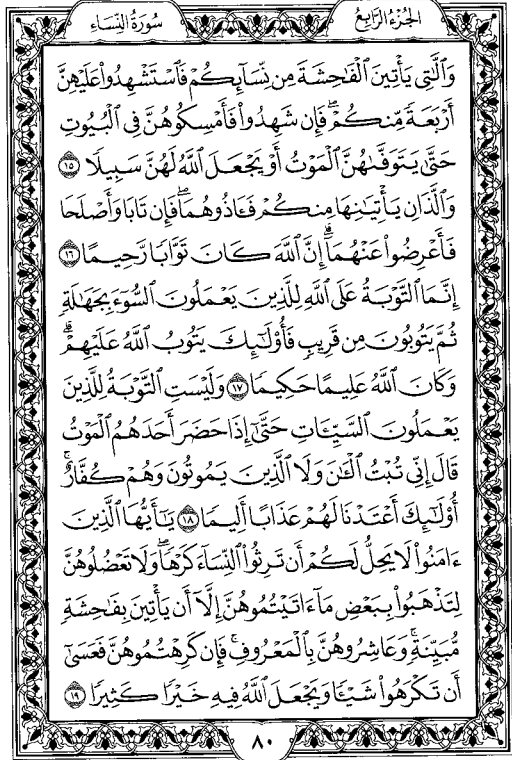 الجُزْءُ الرَّابِعُ
سُورَةُ النِّسَاءِ
وَالَّٰتِي يَأْتِينَ الْفَٰحِشَةَ مِن نِّسَآئِكُمْ فَاسْتَشْهِدُوا۟ عَلَيْهِنَّ
أَرْبَعَةً مِّنكُمْ ۖ فَإِن شَهِدُوا۟ فَأَمْسِكُوهُنَّ فِي الْبُيُوتِ
حَتَّىٰ يَتَوَفَّىٰهُنَّ الْمَوْتُ أَوْ يَجْعَلَ اللَّهُ لَهُنَّ سَبِيلًا ١٥
وَالَّذَانِ يَأْتِيَٰنِهَا مِنكُمْ فَـَٔاذُوهُمَا ۖ فَإِن تَابَا وَأَصْلَحَا
فَأَعْرِضُوا۟ عَنْهُمَآ ۗ إِنَّ اللَّهَ كَانَ تَوَّابًا رَّحِيمًا ١٦
إِنَّمَا التَّوْبَةُ عَلَى اللَّهِ لِلَّذِينَ يَعْمَلُونَ السُّوٓءَ بِجَهَٰلَةٍ
ثُمَّ يَتُوبُونَ مِن قَرِيبٍ فَأُو۟لَٰٓئِكَ يَتُوبُ اللَّهُ عَلَيْهِمْ ۗ
وَكَانَ اللَّهُ عَلِيمًا حَكِيمًا ١٧ وَلَيْسَتِ التَّوْبَةُ لِلَّذِينَ
يَعْمَلُونَ السَّيِّـَٔاتِ حَتَّىٰٓ إِذَا حَضَرَ أَحَدَهُمُ الْمَوْتُ
قَالَ إِنِّي تُبْتُ الْـَٰٔنَ وَلَا الَّذِينَ يَمُوتُونَ وَهُمْ كُفَّارٌ ۚ
أُو۟لَٰٓئِكَ أَعْتَدْنَا لَهُمْ عَذَابًا أَلِيمًا ١٨ يَٰٓأَيُّهَا الَّذِينَ
ءَامَنُوا۟ لَا يَحِلُّ لَكُمْ أَن تَرِثُوا۟ النِّسَآءَ كَرْهًا ۖ وَلَا تَعْضُلُوهُنَّ
لِتَذْهَبُوا۟ بِبَعْضِ مَآ ءَاتَيْتُمُوهُنَّ إِلَّآ أَن يَأْتِينَ بِفَٰحِشَةٍ
مُّبَيِّنَةٍ ۚ وَعَاشِرُوهُنَّ بِالْمَعْرُوفِ ۚ فَإِن كَرِهْتُمُوهُنَّ فَعَسَىٰٓ
أَن تَكْرَهُوا۟ شَيْـًٔا وَيَجْعَلَ اللَّهُ فِيهِ خَيْرًا كَثِيرًا ١٩
٨٠